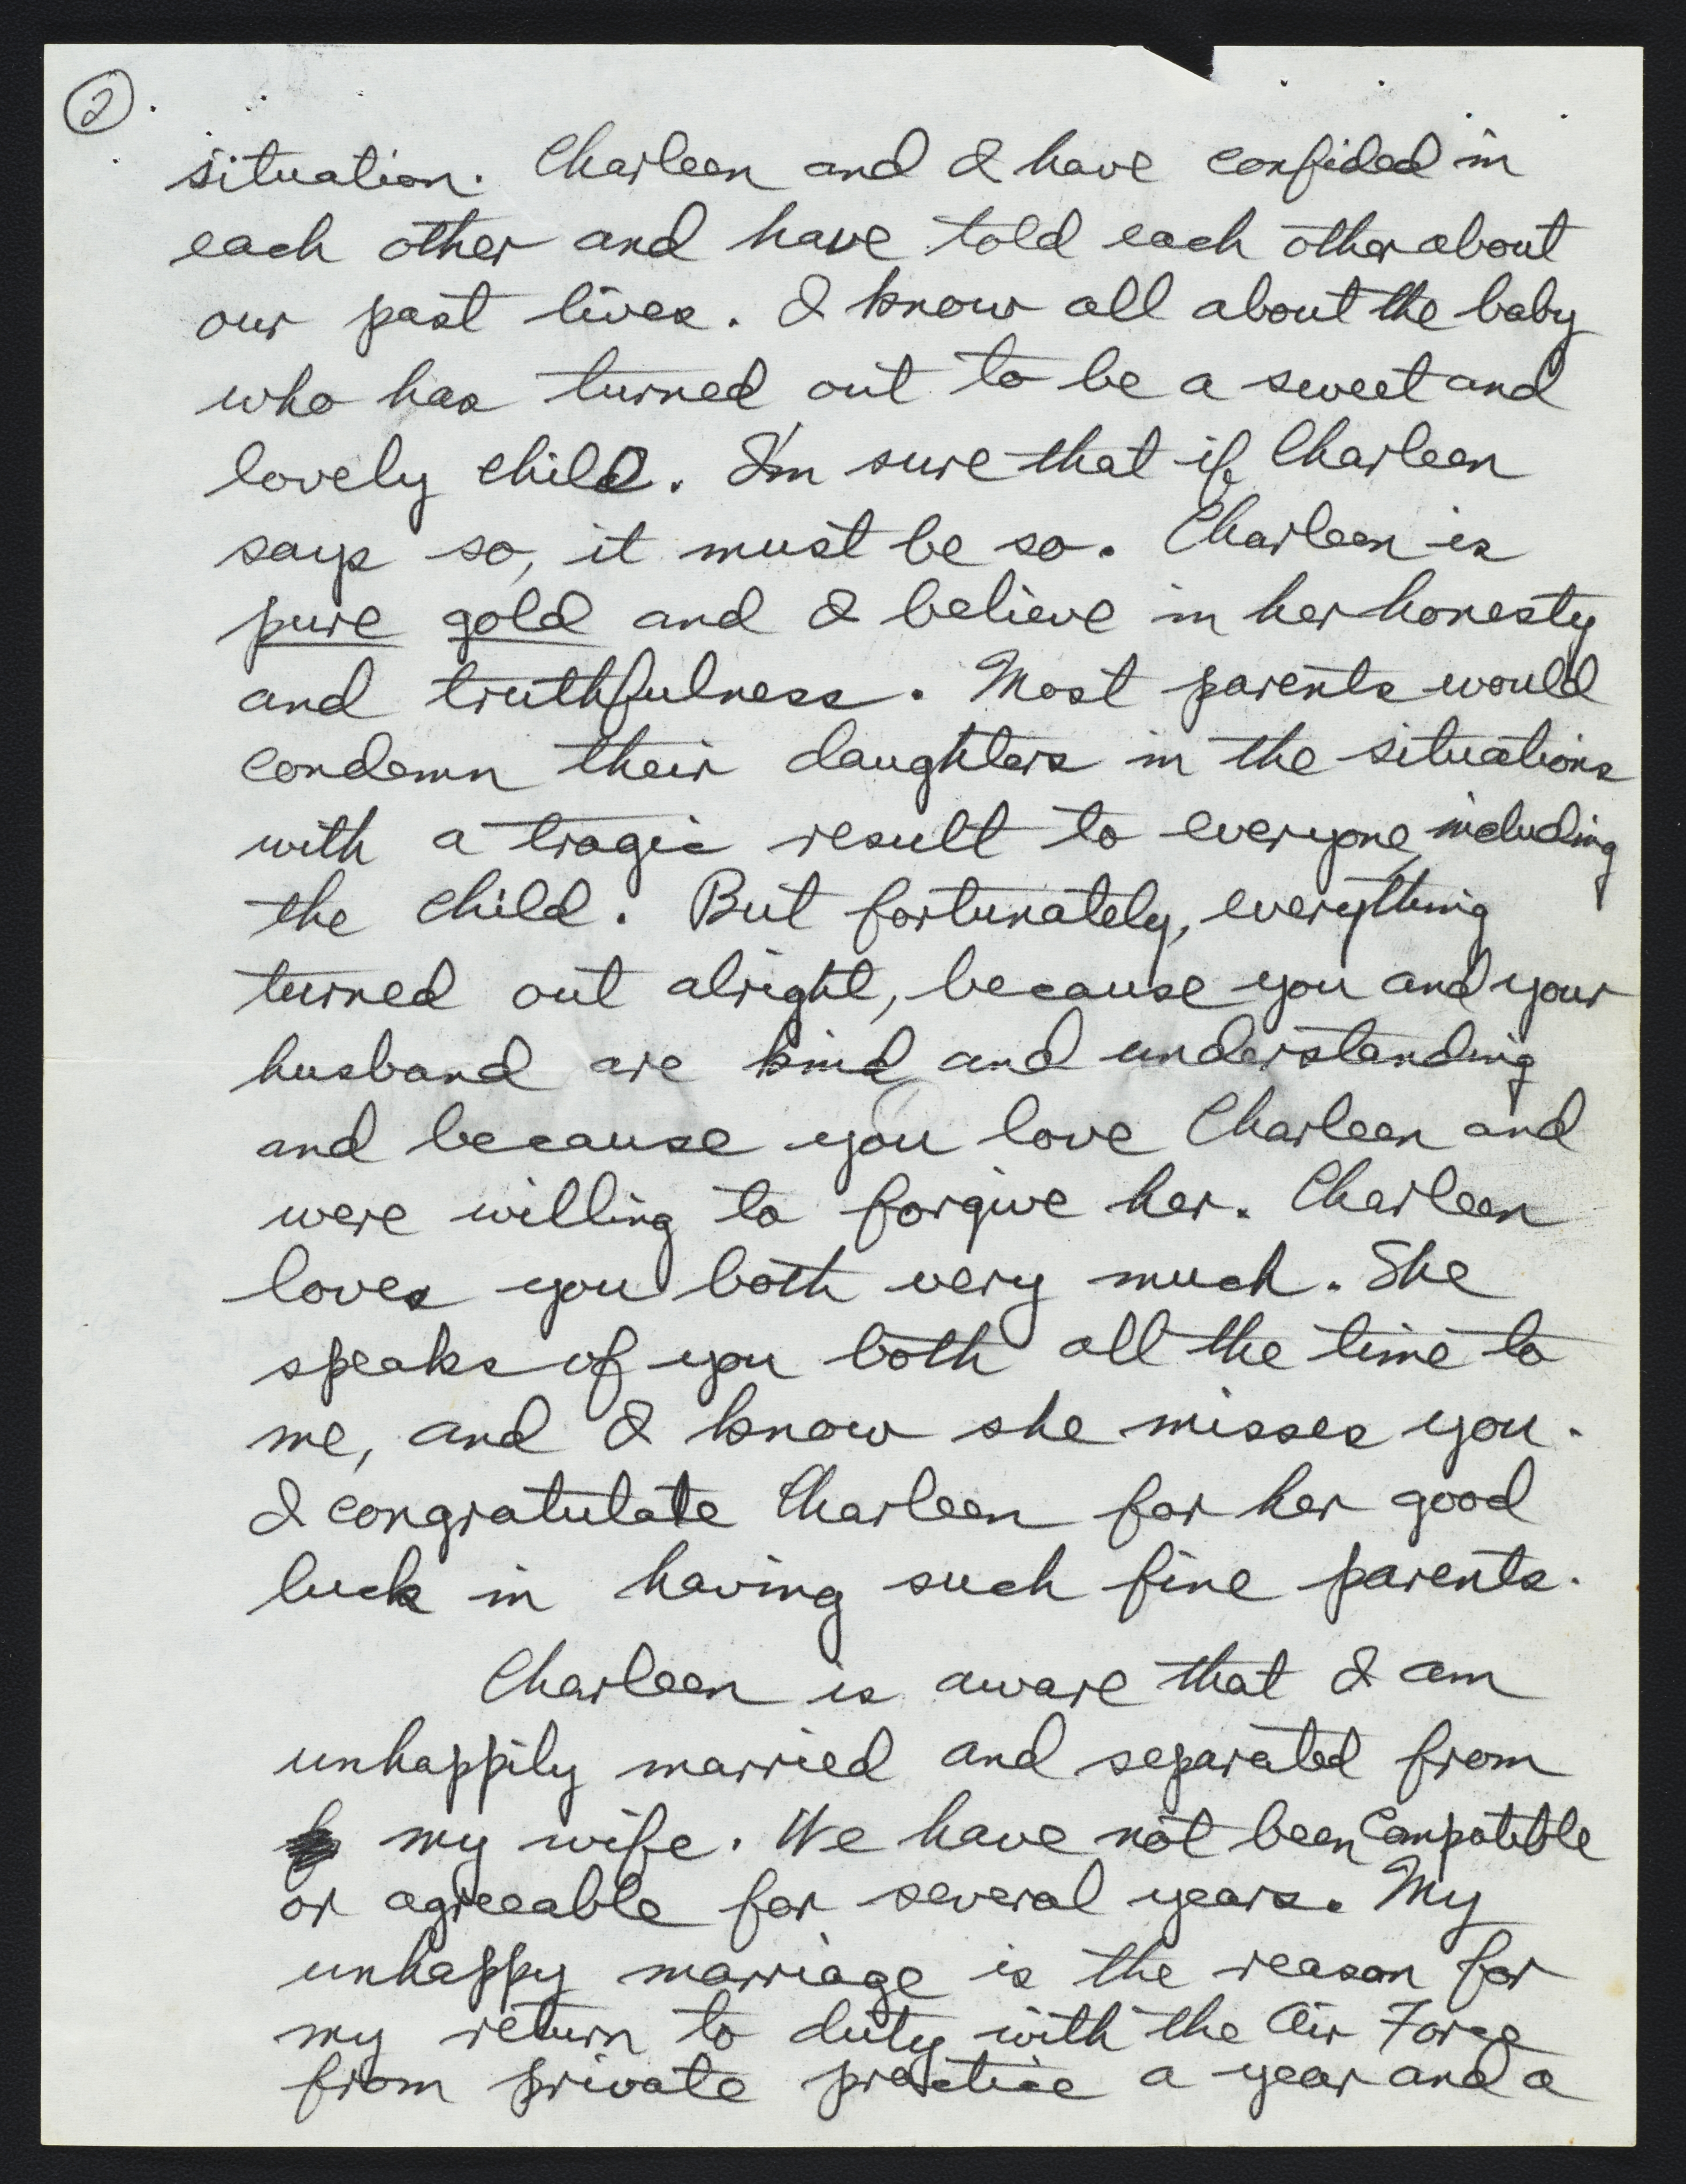 2
situation. Charleen and I have confided in
each other and have told each other about
our past lives. I know all about the baby
who has turned out to be a sweet and
lovely child. I'm sure that if Charleen
says so, it must be so. Charleen is
pure gold and I believe in her honesty
and truthfulness. Most parents would
condemn their daughters in the situations
with a tragic result to everyone, including
the child. But fortunately, everything
turned out alright, because you and your
husband are kind and understanding
and because you love Charleen and
were willing to forgive her. Charleen
loves you both very much. She
speaks of you both all the time to
me, and I know she misses you.
I congratulate Charleen for her good
luck in having such fine parents.
Charleen is aware that I am
unhappily married and separated from
my wife. We have not been compatible
or agreeable for several years. My
unhappy marriage is the reason for
my return to duty with the Air Force
from private practice a year and a